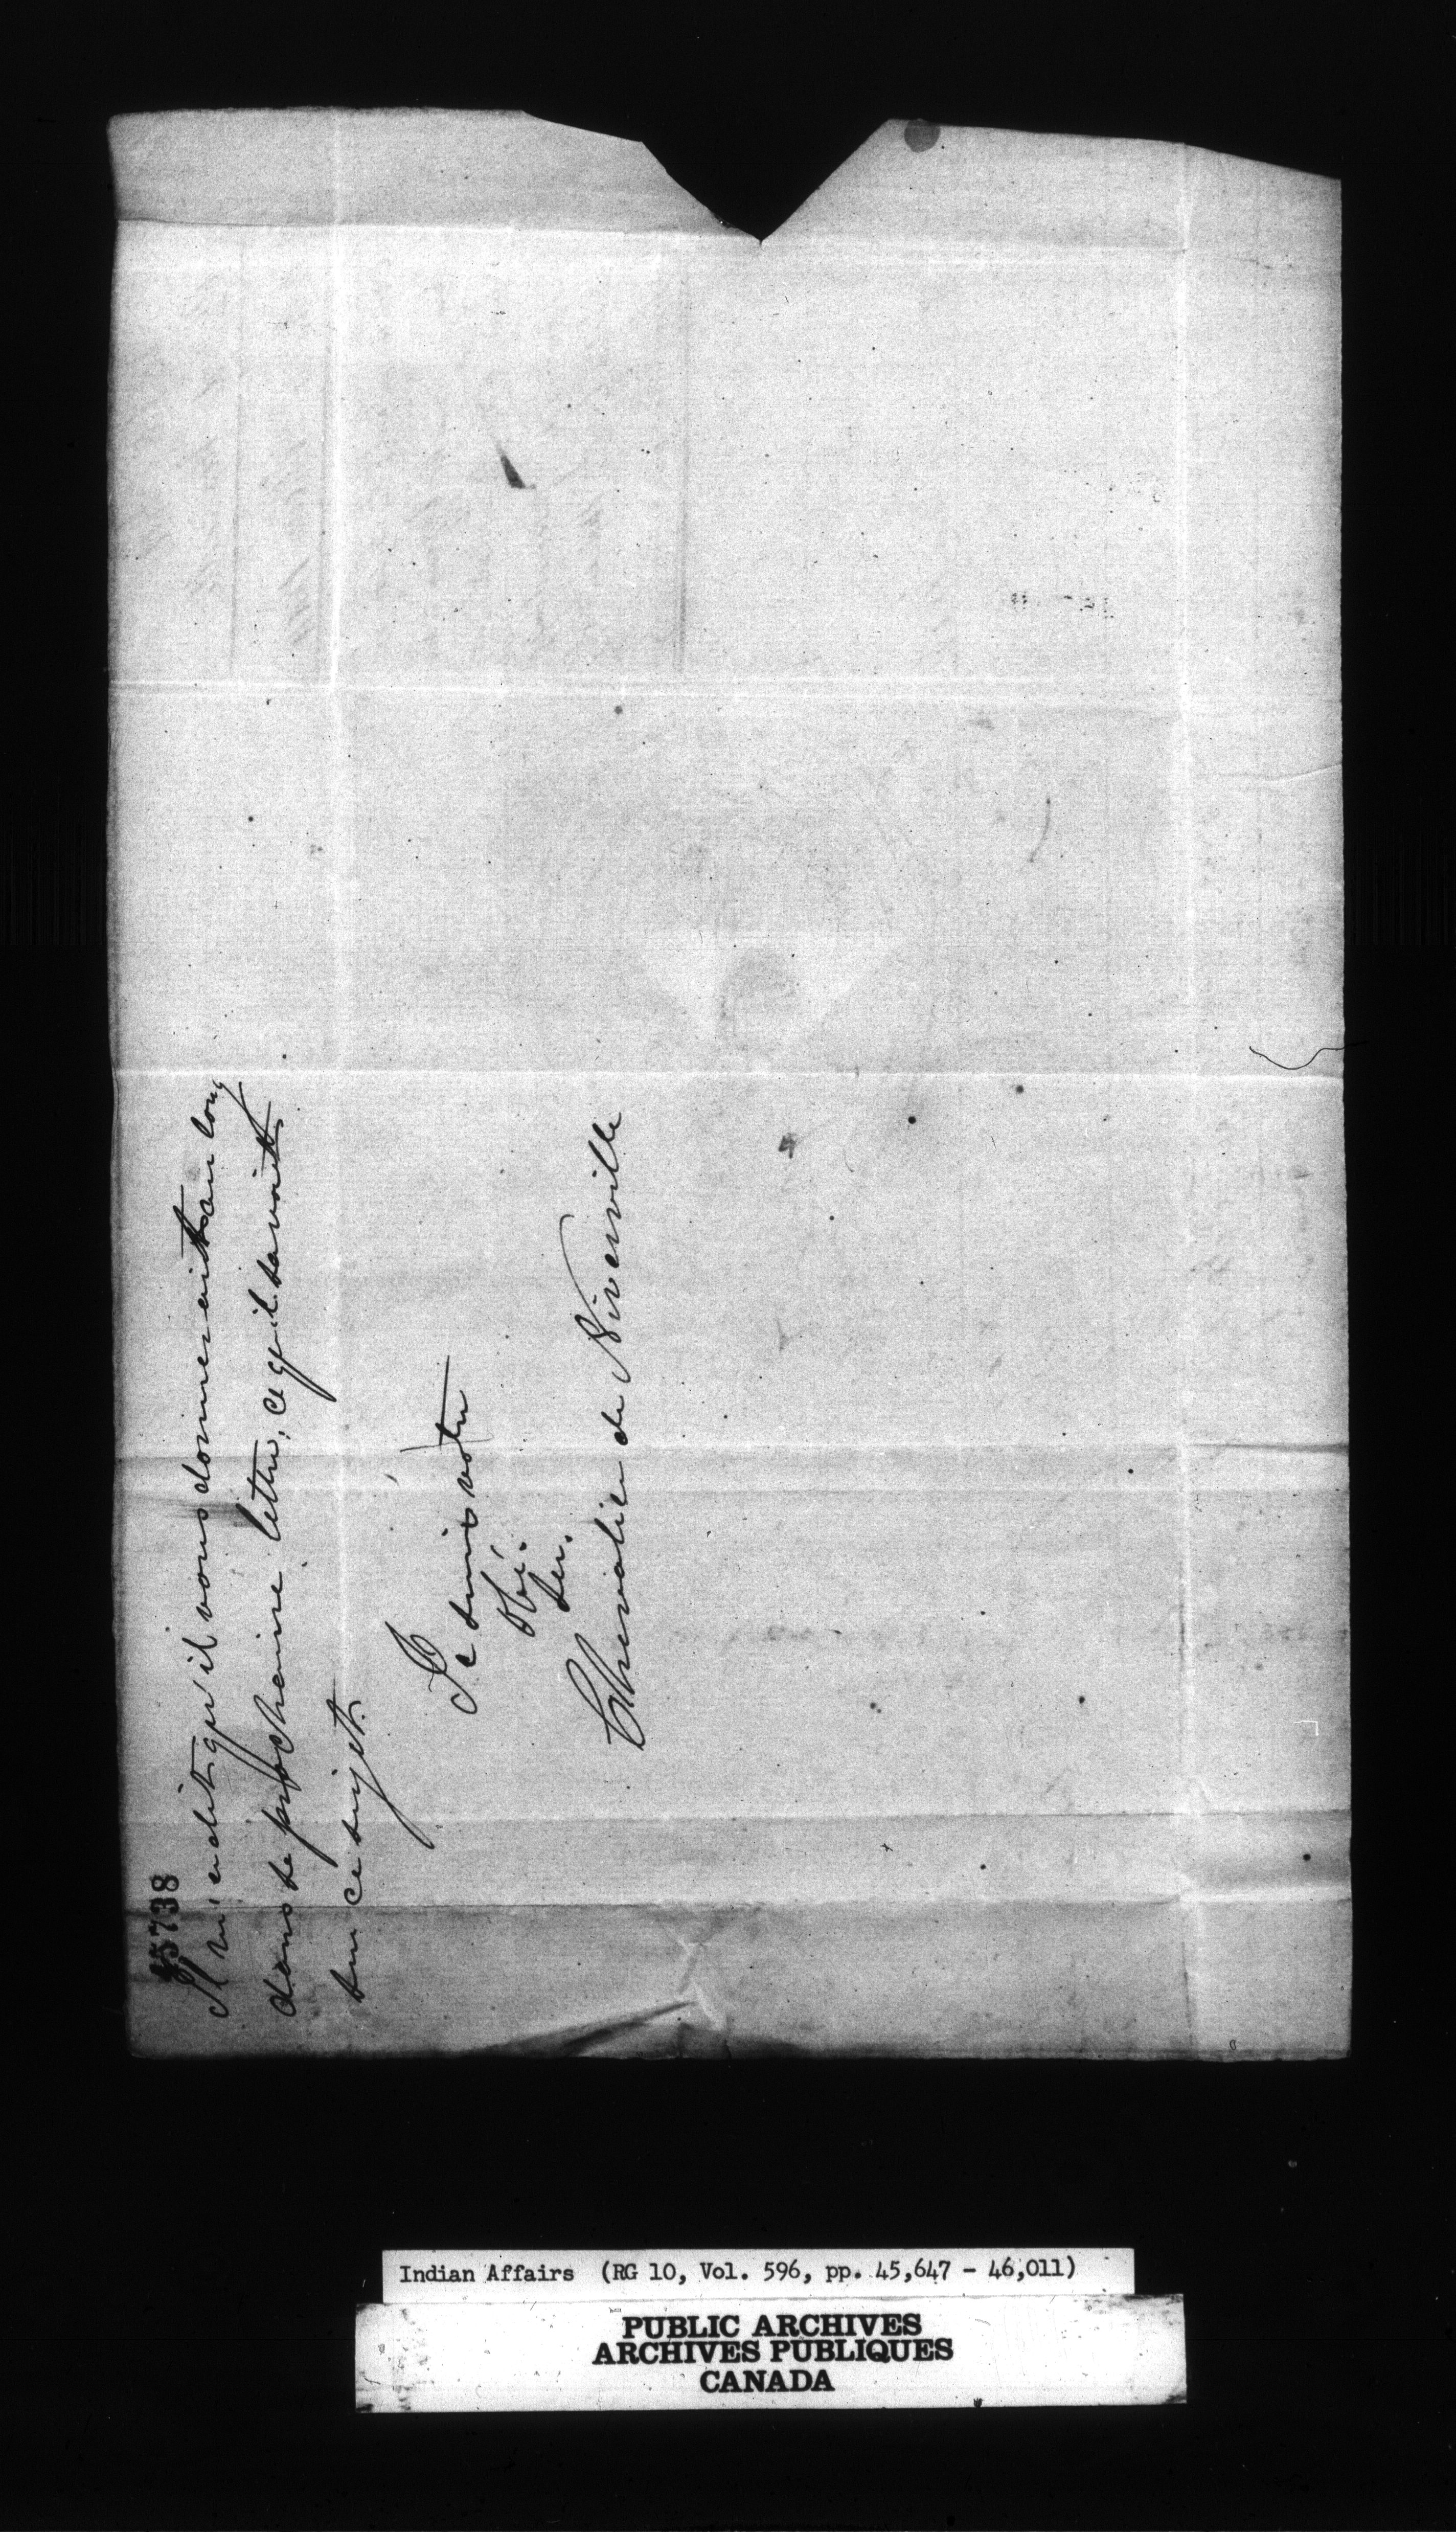 45738
Il m'a dit qu'il vous donnerait au long
dans sa prochaine lettre, ce qu'il savait
sur ce sujet.
Je suis votre
obé.
ser.
Chevalier de Niverville
Indian Affairs (RG 10, Vol. 596, pp. 45,647 - 46,011)
PUBLIC ARCHIVES
ARCHIVES PUBLIQUES
CANADA